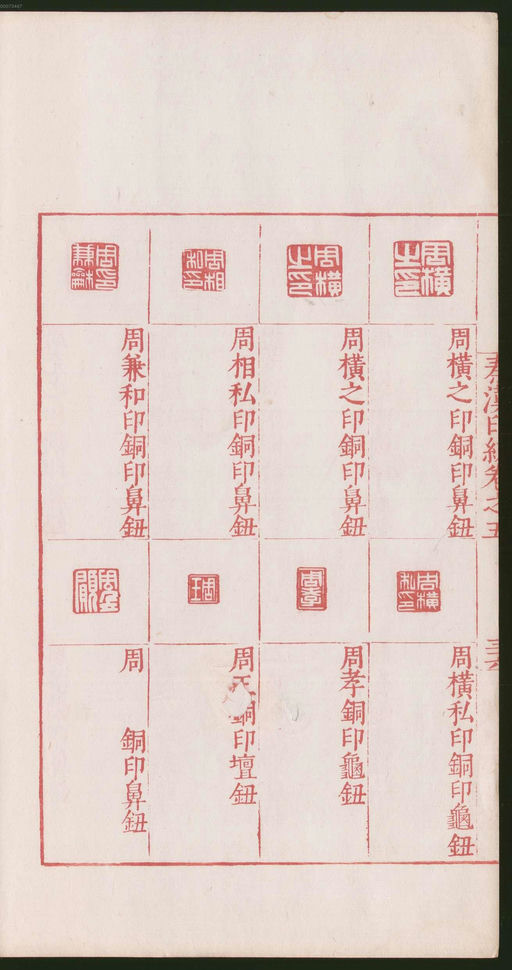 00073447
秦漢印統卷之五
周橫之印
周橫之印銅印鼻鈕
周橫之印
周橫之印銅印鼻鈕
周相私印
周相私印銅印鼻鈕
周印兼和
周兼和印銅印鼻鈕
周橫私印
周橫私印銅印龜鈕
周孝
周孝銅印龜鈕
周王
周 銅印壇鈕
周 銅印鼻鈕